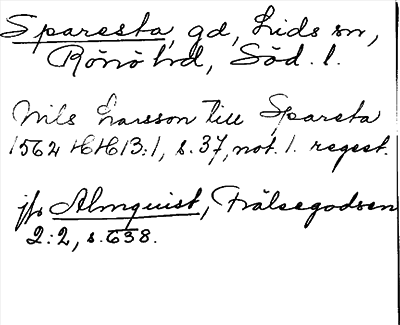 Sparesta, gd, Lids sn,
Rönö hd, Söd. l.
Nils Larsson till Sparsta
1562 HH 13:1, s. 37, not. 1. regest.
jfr Almquist, Frälsegodsen
2:2, s. 638.